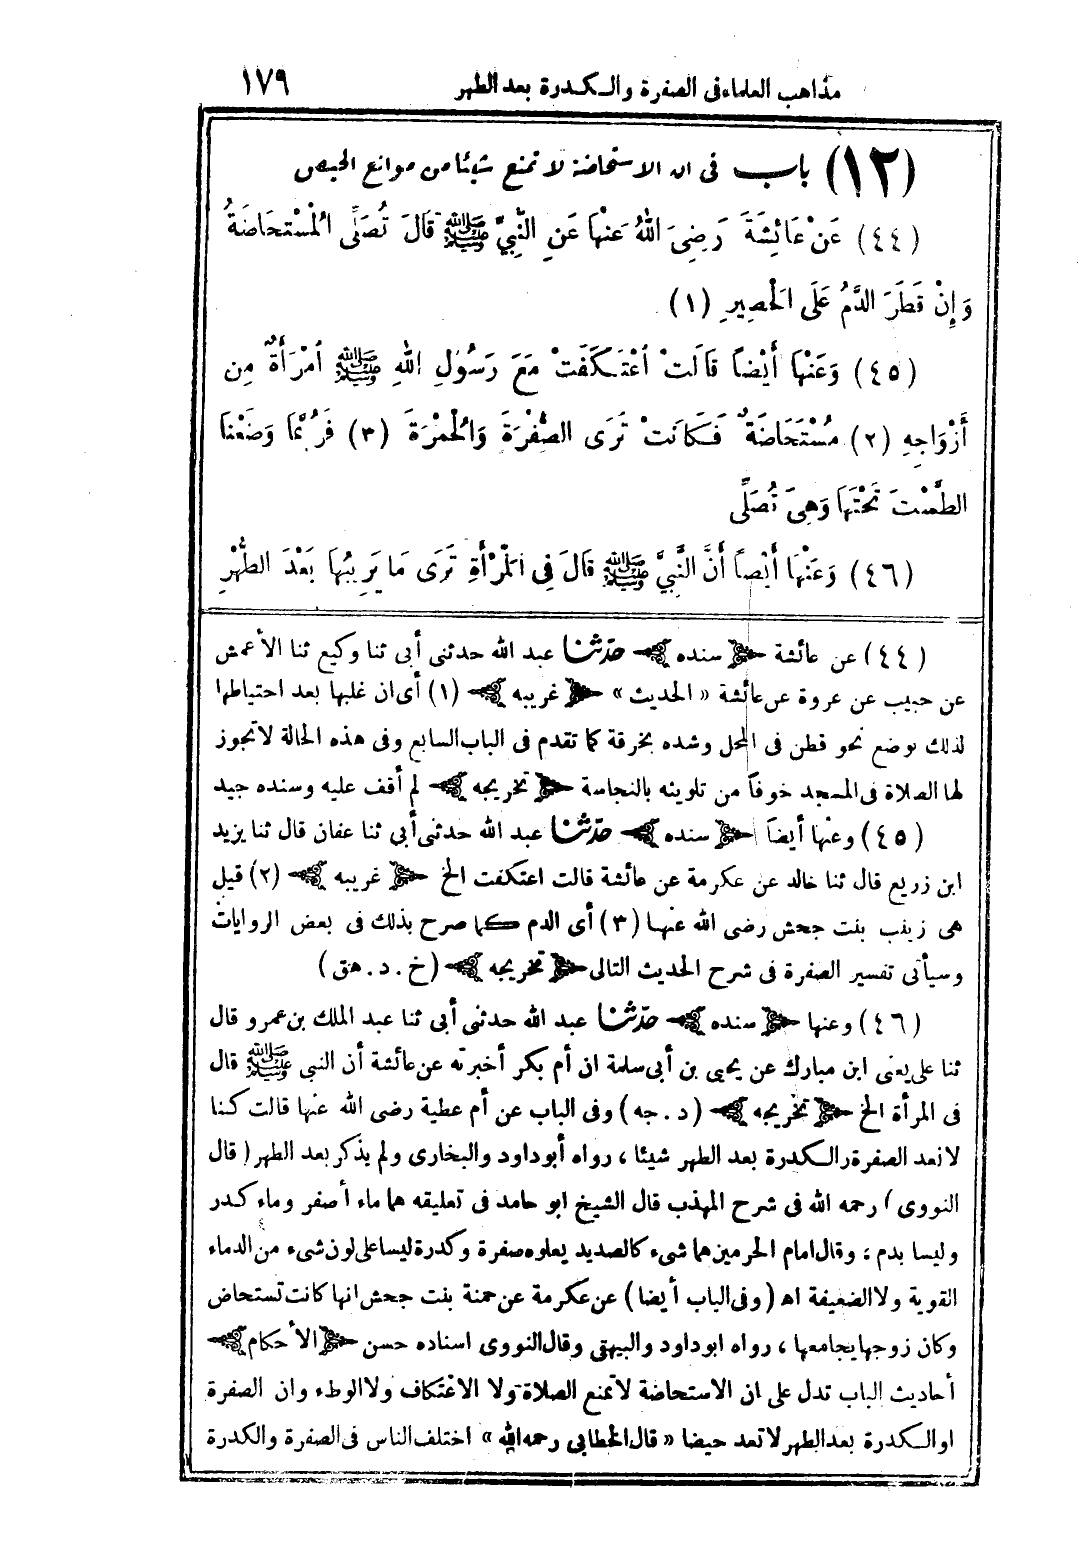 مذاهب العلماء فى الصفرة والكدرة بعد الطهر ١٧٩
(١٢) باب فى ان الاستحاضة لا تمنع شيئا من موانع الحيض
(٤٤) عَنْ عَائِشَةَ رَضِىَ اللهُ عَنْهَا عَنِ النَّبِيِّ ﷺ قَالَ تُصَلِّى الْمُسْتَحَاضَةُ
وَإِنْ قَطَرَ الدَّمُ عَلَى الْحَصِيرِ (١)
(٤٥) وَعَنْهَا أَيْضاً قَالَتْ اُعْتَكَفَتْ مَعَ رَسُولِ اللهِ ﷺ اُمْرَأَةٌ مِن
أَزْوَاجِهِ (٢) مُسْتَحَاضَةٌ فَكَانَتْ تَرَى الصُّفْرَةَ وَالْحُمْرَةَ (٣) فَرُبَّمَا وَضَعْنَا
الطَّسْتَ تَحْتَهَا وَهِىَ تُصَلِّى
(٤٦) وَعَنْهَا أَيْضاً أَنَّ النَّبِيَّ ﷺ قَالَ فِى الْمَرْأَةِ تَرَى مَا يَرِيبُهَا بَعْدَ الطُّهْرِ
(٤٤) عن عائشة ﴿سنده﴾ حدّثنا عبد الله حدثنى أبى ثنا وكيع ثنا الأعمش
عن حبيب عن عروة عن عائشة «الحديث» ﴿غريبه﴾ (١) أى ان غلبها بعد احتياطها
لذلك بوضع نحو قطن فى المحل وشده بخرقة كما تقدم فى الباب السابع وفى هذه الحالة لا تجوز
لها الصلاة فى المسجد خوفاً من تلويثه بالنجاسة ﴿تخريجه﴾ لم أقف عليه وسنده جيد
(٤٥) وعنها أيضاً ﴿سنده﴾ حدّثنا عبد الله حدثنى أبى ثنا عفان قال ثنا يزيد
ابن زريع قال ثنا خالد عن عكرمة عن عائشة قالت اعتكفت الخ ﴿غريبه﴾ (٢) قيل
هى زينب بنت جحش رضى الله عنها (٣) أى الدم كما صرح بذلك فى بعض الروايات
وسيأتى تفسير الصفرة فى شرح الحديث التالى ﴿تخريجه﴾ (خ . د . هق)
(٤٦) وعنها ﴿سنده﴾ حدّثنا عبد الله حدثنى أبى ثنا عبد الملك بن عمرو قال
ثنا على يعنى ابن مبارك عن يحيى بن أبى سلمة ان أم بكر أخبرته عن عائشة أن النبى ﷺ قال
فى المرأة الخ ﴿تخريجه﴾ (د . جه) وفى الباب عن أم عطية رضى الله عنها قالت كنا
لا نعد الصفرة والكدرة بعد الطهر شيئا ، رواه أبو داود والبخارى ولم يذكر بعد الطهر (قال
النووى) رحمه الله فى شرح المهذب قال الشيخ ابو حامد فى تعليقه هما ماء أصفر وماء كدر
وليسا بدم ، وقال امام الحرمين هما شىء كالصديد يعلوه صفرة وكدرة ليسا على لون شىء من الدماء
القوية ولا الضعيفة اه (وفى الباب أيضا) عن عكرمة عن حمنة بنت جحش انها كانت تستحاض
وكان زوجها يجامعها ، رواه ابو داود والبيهقى وقال النووى اسناده حسن ﴿الأحكام﴾
أحاديث الباب تدل على ان الاستحاضة لا تمنع الصلاة ولا الاعتكاف ولا الوطء وان الصفرة
او الكدرة بعد الطهر لا تعد حيضا «قال الخطابى رحمه الله» اختلف الناس فى الصفرة والكدرة